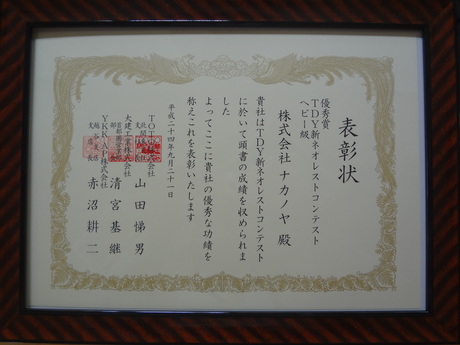 表彰状
優秀賞
TDY新ネオレストコンテスト
ヘビー級
株式会社 ナカノヤ 殿
貴社はTDY新ネオレストコンテスト
に於いて頭書の成績を収められま
した
よってここに貴社の優秀な功績を
称えこれを表彰いたします
平成二十四年九月二十一日
TOTO株式会社
山田悌男
大建工業株式会社
清宮基継
YKKAP株式会社
赤沼耕二